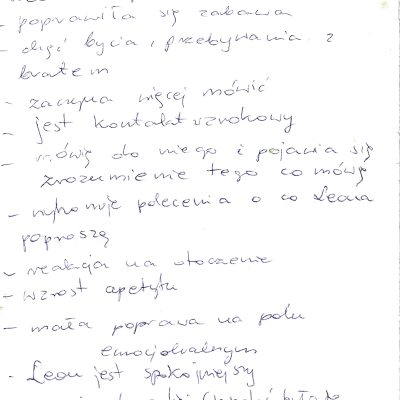 - poprawiła się zabawa
- chęć bycia i przebywania z
bratem
- zaczyna więcej mówić
- jest kontakt wzrokowy
- mówię do niego i pojawia się
zrozumienie tego co mówię
- wykonuje polecenia o co Leona
poproszę
- reakcja na otoczenie
- wzrost apetytu
- mała poprawa na polu
emocjonalnym
- Leon jest spokojniejszy